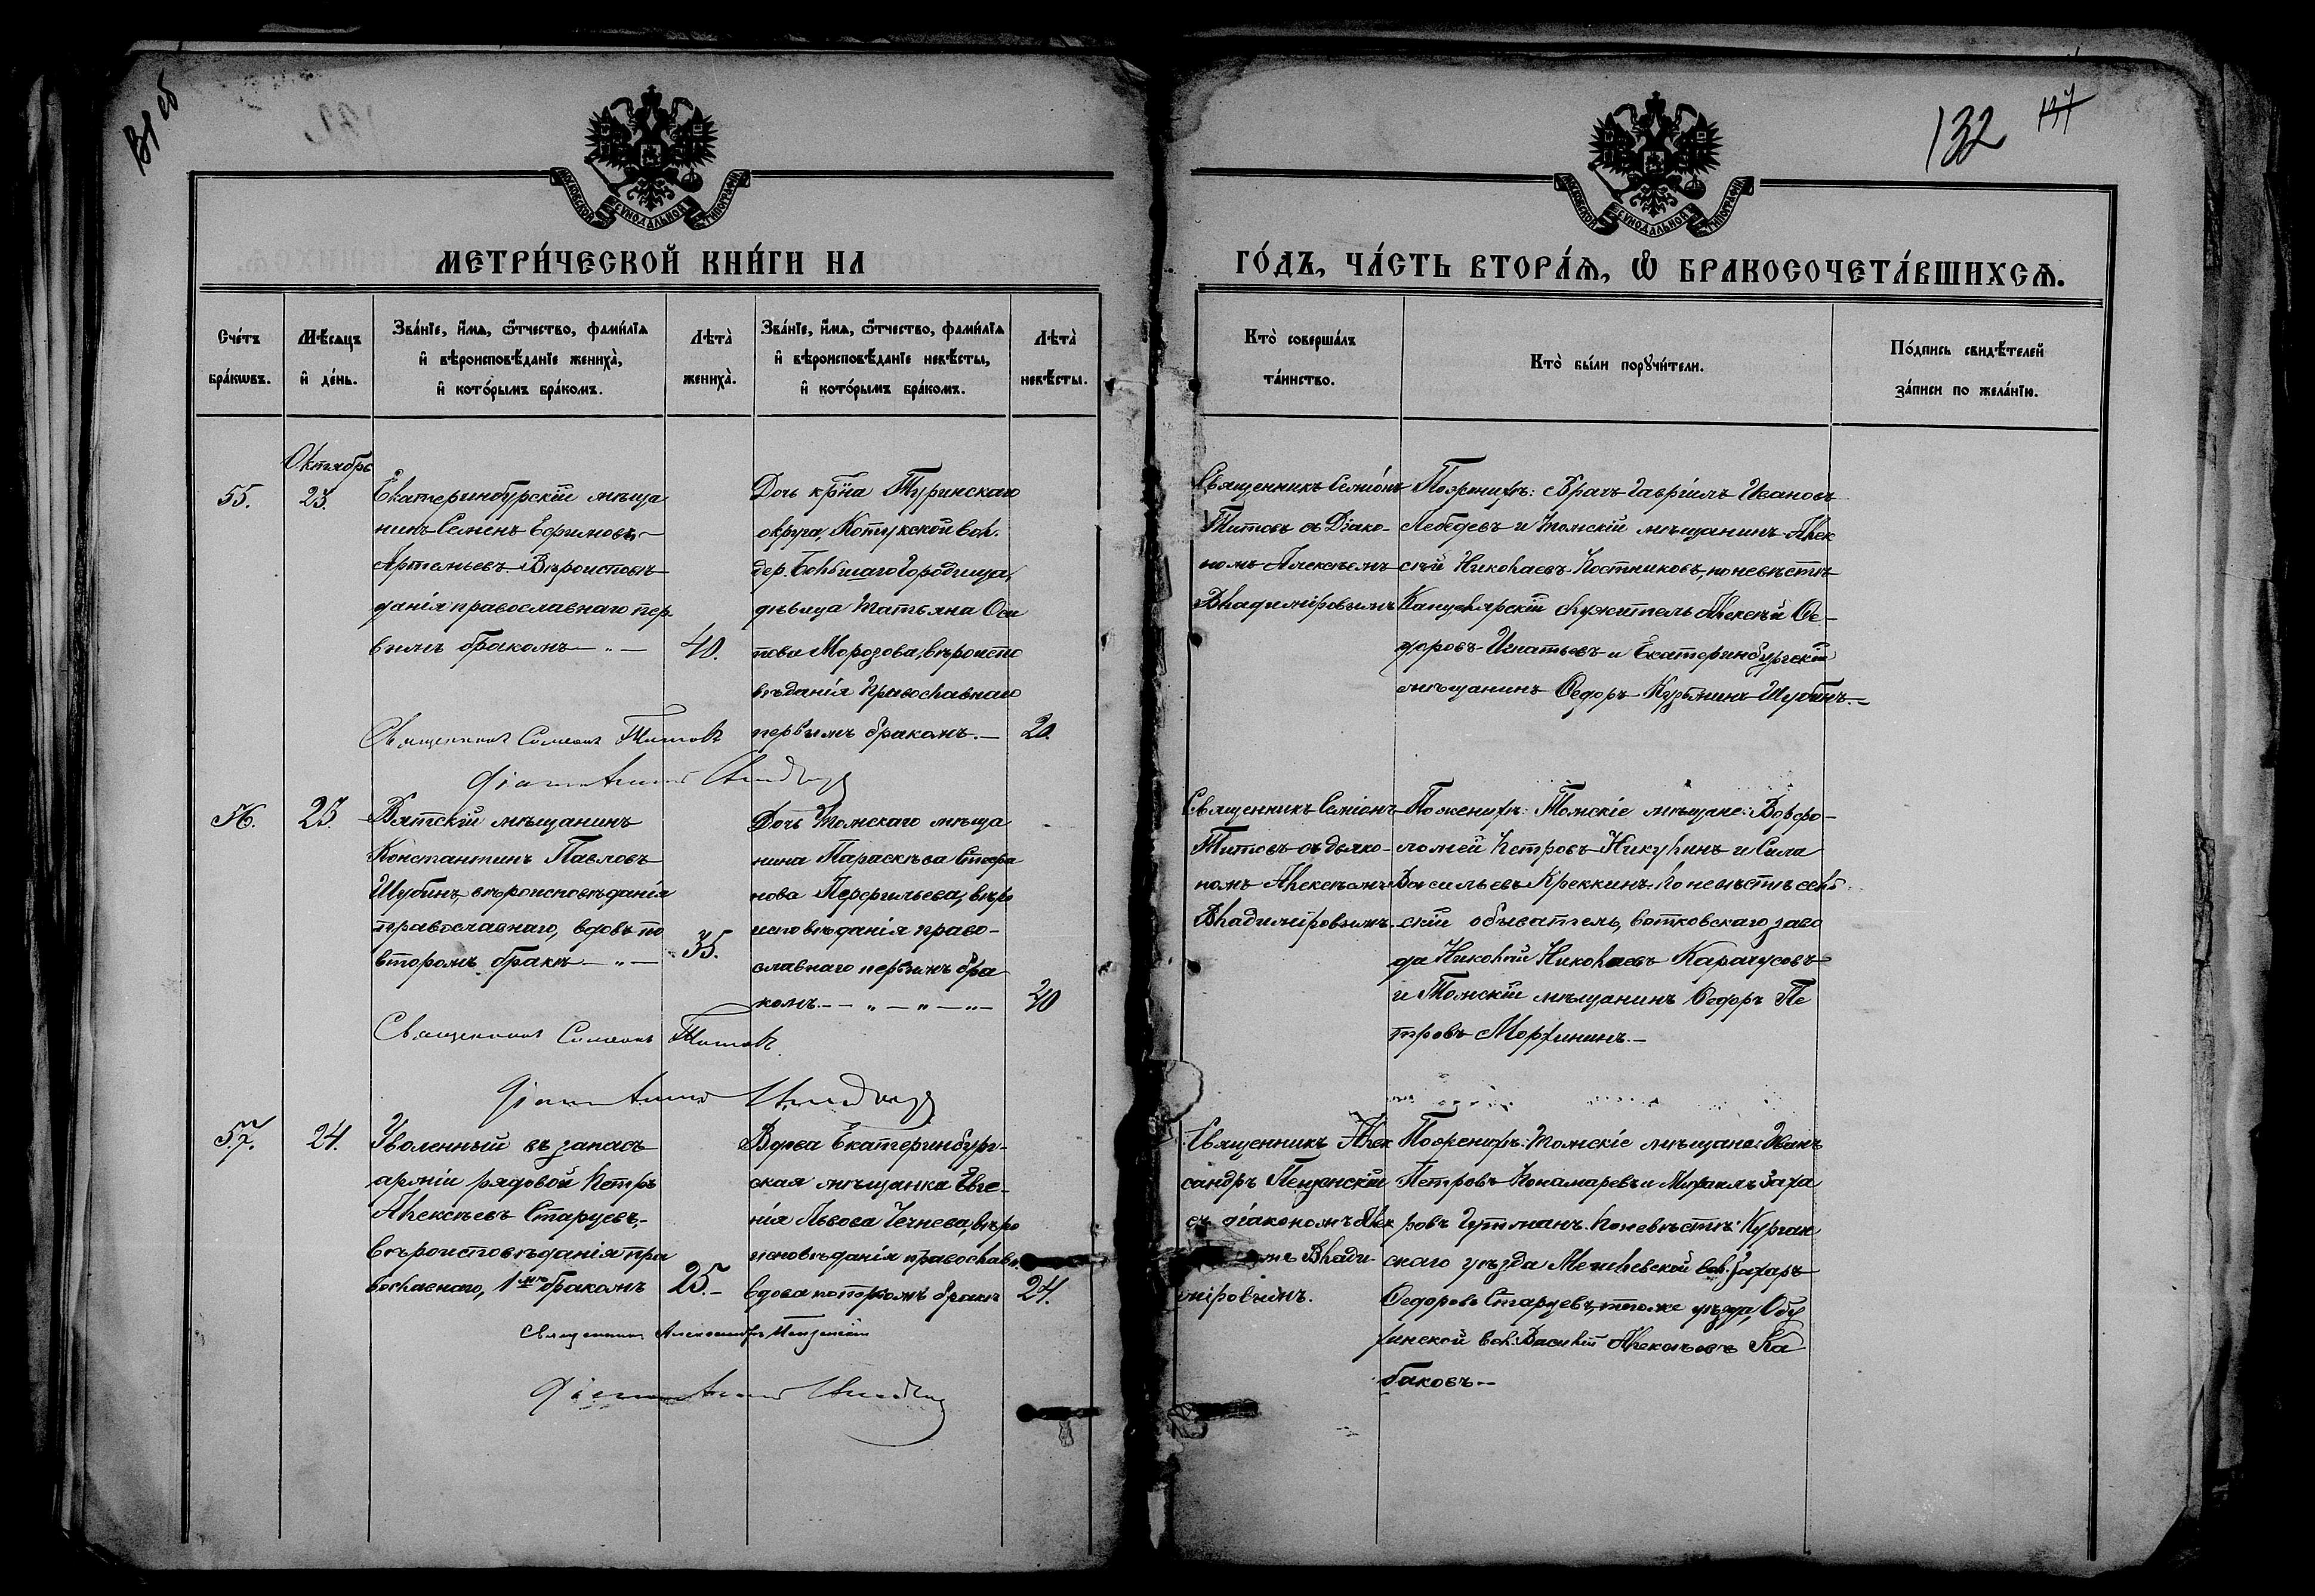 132
МОСКОВСКОЙ СѴНОДАЛЬНОЙ ТИПОГРАФІИ
МОСКОВСКОЙ СѴНОДАЛЬНОЙ ТИПОГРАФІИ
МЕТРИ́ЧЕСКОЙ КНИ́ГИ НА
ГО́ДЪ, ЧА́СТЬ ВТОРА́Ѧ, Ѡ҆ БРАКОСОЧЕТА́ВШИХСѦ.
Сче́тъ
бра́кѡвъ.
Мѣ́сяцъ
и҆ де́нь.
Зва́нїе, и҆́мѧ, ѻ҆́тчество, фами́лїѧ
и҆ вѣроисповѣ́данїе жениха̀,
и҆ кото́рымъ бра́комъ.
Лѣта̀
жениха̀.
Зва́нїе, и҆́мѧ, ѻ҆́тчество, фами́лїѧ
и҆ вѣроисповѣ́данїе невѣ́сты,
и҆ кото́рымъ бра́комъ.
Лѣта̀
невѣ́сты.
Кто̀ соверша́лъ
та́инство.
Кто̀ бы́ли порꙋчи́тели.
По́дпись свидѣ́телей
за́писи по жела́нїю.
55.
Октябрь
23.
Екатеринбурскій мѣща
нинъ Семенъ Ефимовъ
Артемьевъ. Вѣроисповѣ
данія православнаго пер
вымъ бракомъ
40.
Дочь кр̃на Туринскаго
округа, Кошукской вол.
дер. Большаго Городища,
дѣвица Татьяна Оси
пова Морозова, вѣроиспо
вѣданія православнаго
первымъ бракомъ.—
20.
Священникъ Семіонъ
Титовъ съ Діако-
номъ Алексѣемъ
Владиміровымъ
Пожениху: Врачъ Гавріилъ Ивановъ
Лебедевъ и Томскій мѣщанинъ Алек
сѣй Николаевъ Постниковъ, по невѣстѣ
Канцелярскій служитель Алексѣй Ѳе-
доровъ Игнатьевъ и Екатеринбургскій
мѣщанинъ Ѳедоръ Кузьминъ Шубинъ.—
Священникъ Симеонъ Титовъ
56.
23.
Вятскій мѣщанинъ
Константинъ Павловъ
Шубинъ, вѣроисповѣданія
православнаго, вдовъ по
второмъ бракѣ
35.
Дочь Томскаго мѣща
нина Параскева Стефа
нова Перфильева, вѣро
исповѣданія право-
славнаго первымъ бра
комъ.
20
Священникъ Семіонъ
Титовъ съ дьяко-
номъ Алексѣемъ
Владиміровымъ.
Пожениху: Томскіе мѣщане: Ворфо-
ломей Петровъ Никулинъ и Сила
Васильевъ Креккинъ. По невѣстѣ сель
скій обыватель, вотковскаго заво
да Николай Николаевъ Карачусовъ
и Томскій мѣщанинъ Ѳедоръ Пе
тровъ
Священникъ Симеонъ Титовъ
57.
24.
Уволенный въ запасъ
арміи рядовой Петръ
Алексѣевъ Старцевъ,
вѣроисповѣданія пра
вославнаго, 1мъ бракомъ
25.—
Вдова Екатеринбург-
ская мѣщанка Евге-
нія Львова Чечнева, вѣро
исповѣданія православн.
вдова по первомъ бракѣ
24.
Священникъ Алек
сандръ Пензенскій
съ діакономъ Алек
Влади
міровымъ.
Пожениху: Томскіе мѣщане: Иванъ
Петровъ Понамаревъ и Михаилъ Заха
ровъ Гутманъ. По невѣстѣ: Курган
скаго уѣзда вол. Захаръ
Ѳедоровъ Старцевъ, тогоже уѣзда,
вол. Василій Алексѣевъ Ка
баковъ.—
Священникъ Александръ Пензенскій